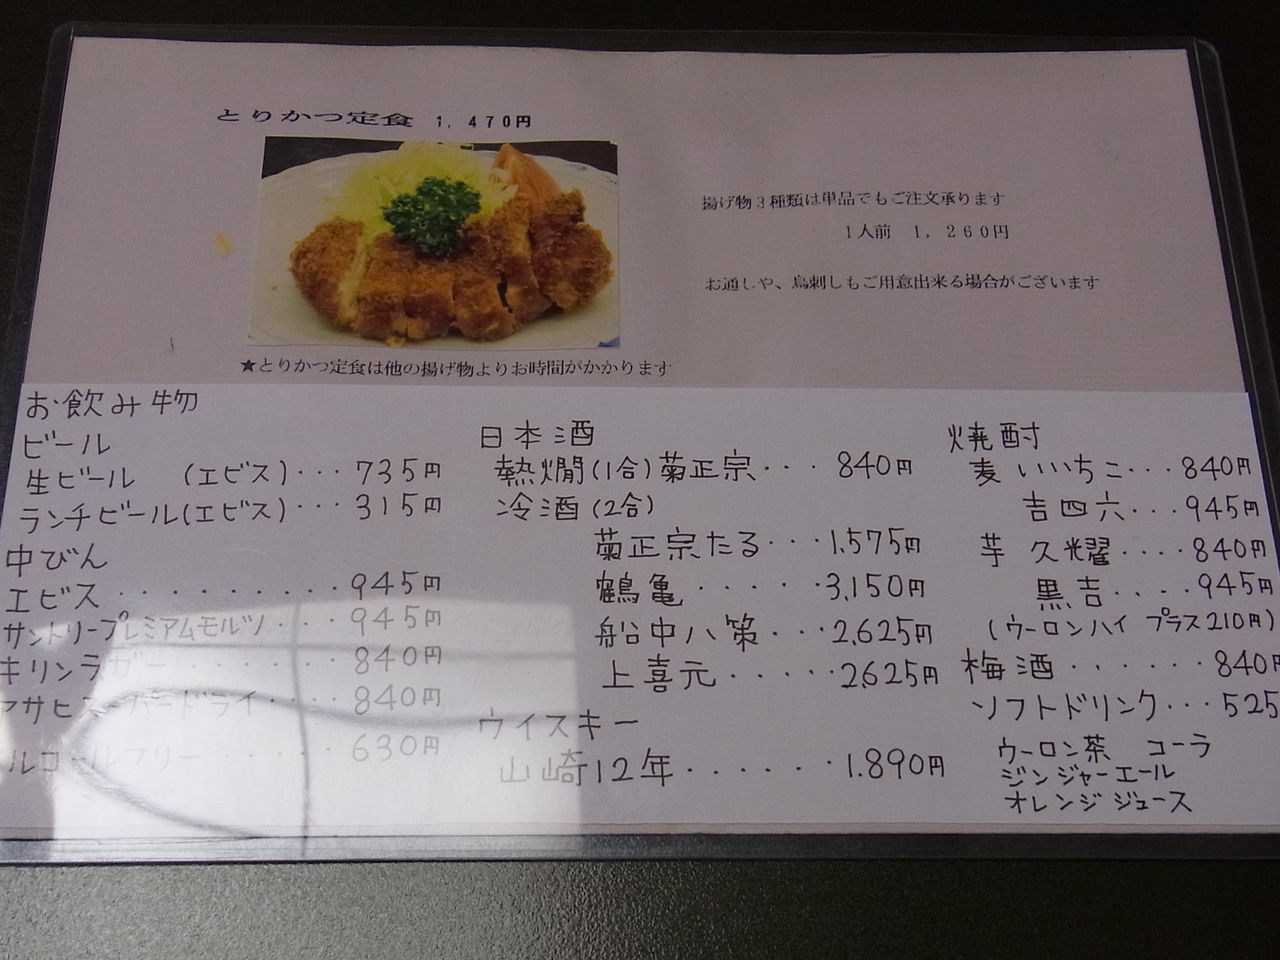 とりかつ定食 1,470円
揚げ物3種類は単品でもご注文承ります
1人前 1,260円
お通しや、鳥刺しもご用意出来る場合がございます
★とりかつ定食は他の揚げ物よりお時間がかかります
お飲み物
ビール
生ビール (エビス)・・・735円
ランチビール(エビス)・・・315円
中びん
エビス・・・・・・・・・945円
サントリープレミアムモルツ・・・945円
キリンラガー・・・・・・840円
アサヒスーパードライ・・・・840円
アルコールフリー・・・・・630円
日本酒
熱燗(1合)菊正宗・・・840円
冷酒(2合)
菊正宗たる・・・1,575円
鶴亀・・・・・3,150円
船中八策・・・2,625円
上喜元・・・・・2,625円
ウイスキー
山崎12年・・・・・・1,890円
焼酎
麦 いいちこ・・・840円
吉四六・・・945円
芋 久耀・・・・840円
黒吉・・・・945円
(ウーロンハイ プラス210円)
梅酒・・・・・・840円
ソフトドリンク・・・525
ウーロン茶 コーラ
ジンジャーエール
オレンジジュース